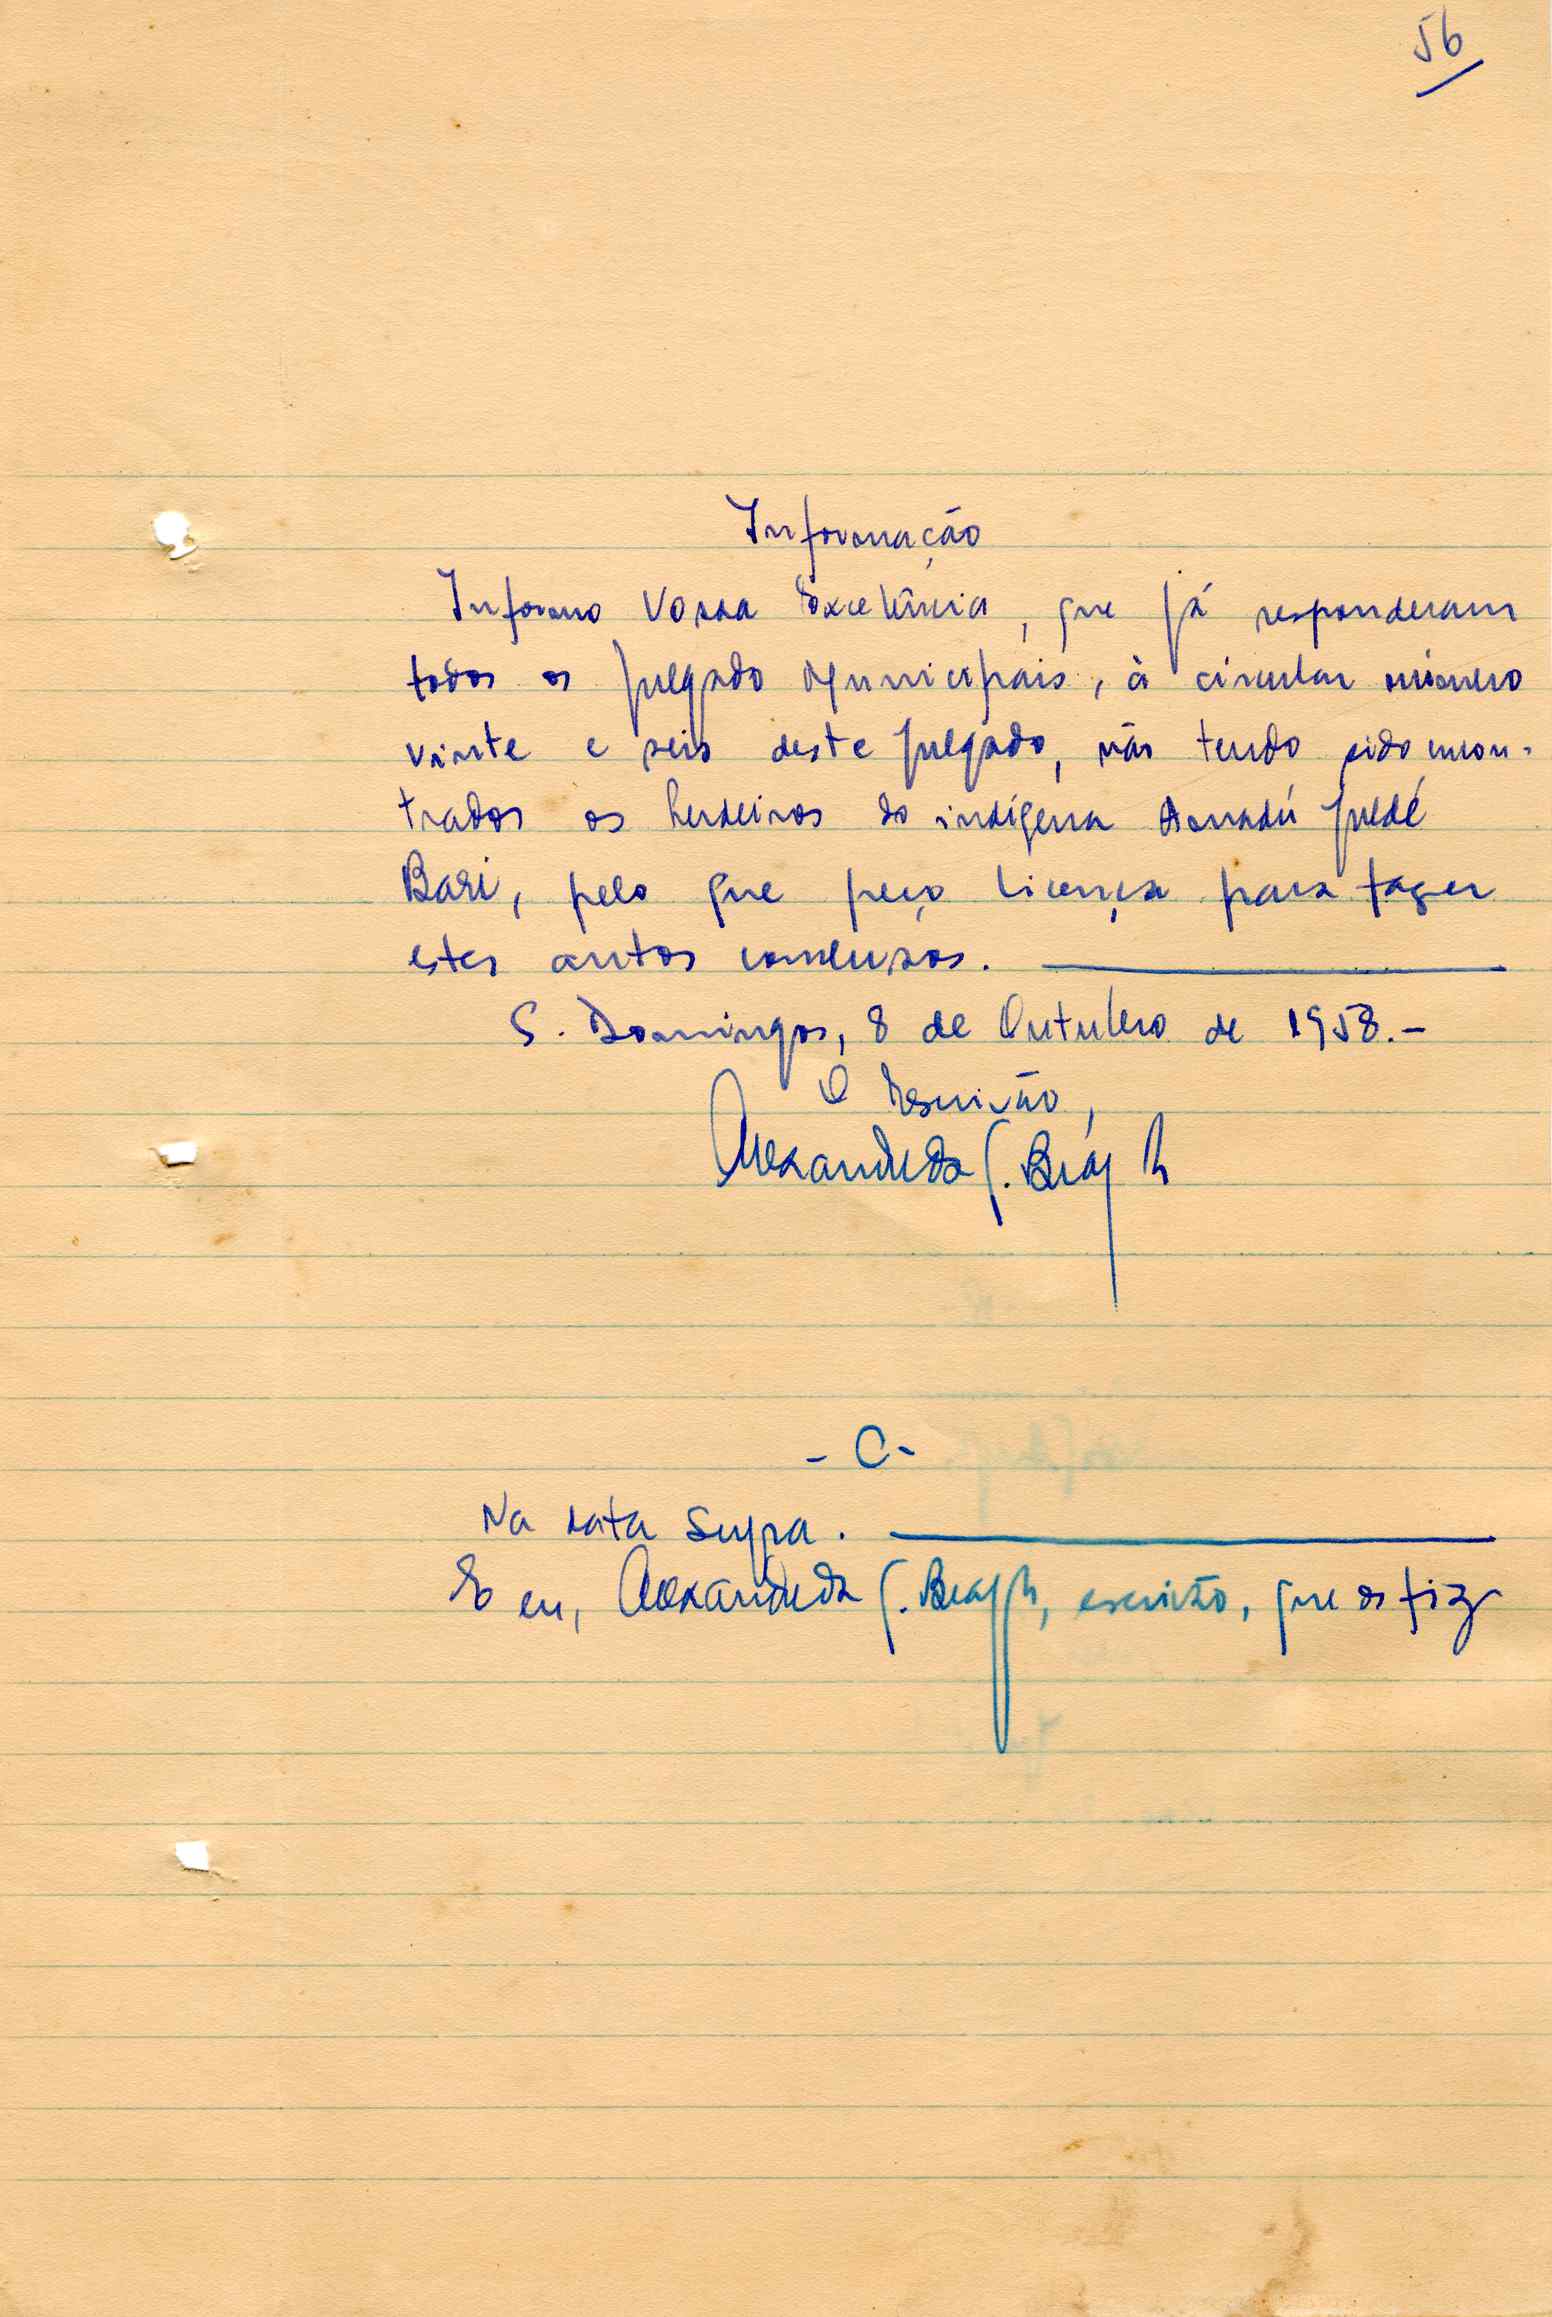 56
Informação
Informo Vossa Excelência, que já responderam
todos os Julgado Municipais, à circular número
vinte e seis deste Julgado, não tendo sido encon-
trados os herdeiros do indígena Amadú Juldé
Bari, pelo que peço licença para fazer
estes autos conclusos.
S. Domingos, 8 de Outubro de 1958.-
O Escrivão,
Alexandre da S.
- C -
Na data supra.
E eu, Alexandre da S. escrivão, que os fiz